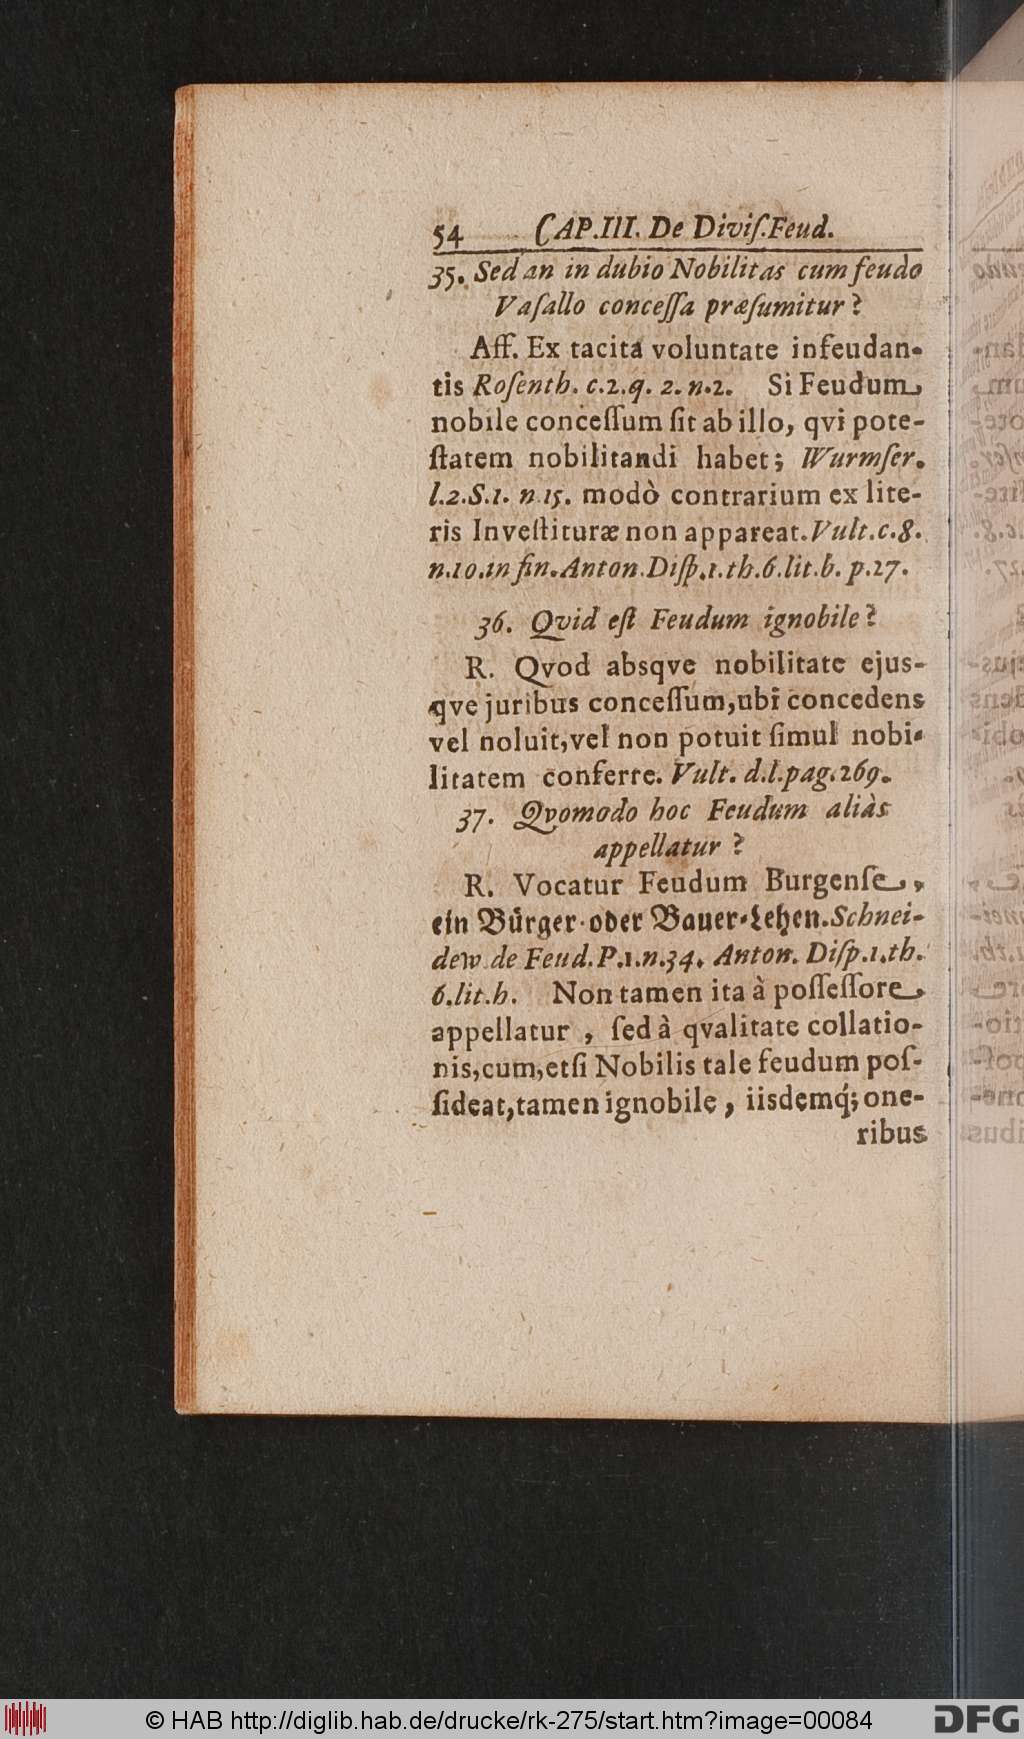 54 CAP.III. De Diviſ.Feud.
35. Sed an in dubio Nobilitas cum feudo
Vaſallo conceſſa præſumitur?
Aff. Ex tacitâ voluntate infeudan-
tis Roſenth. c.2.q. 2. n.2. Si Feudum
nobile conceſſum ſit ab illo, qvi pote-
ſtatem nobilitandi habet; Wurmſer.
l.2.S.1. n 15. modò contrarium ex lite-
ris Inveſtituræ non appareat. Vult.c.8.
n.10.in fin. Anton.Diſp.1.th.6.lit.b. p.27.
36. Qvid eſt Feudum ignobile?
R. Qvod absqve nobilitate ejus-
qve juribus conceſſum,ubi concedens
vel noluit,vel non potuit ſimul nobi-
litatem conferre. Vult. d.l.pag.269.
37. Qvomodo hoc Feudum aliàs
appellatur?
R. Vocatur Feudum Burgenſe,
ein Bürger-oder Bauer-Lehen. Schnei-
dew. de Feud. P.1.n.34. Anton. Diſp.1.th.
6.lit.h. Non tamen ita à poſſeſſore,
appellatur, ſed à qvalitate collatio-
nis,cum,etſi Nobilis tale feudum poſ-
ſideat,tamen ignobile, iisdemq́; one-
ribus
© HAB http://diglib.hab.de/drucke/rk-275/start.htm?image=00084
DFG